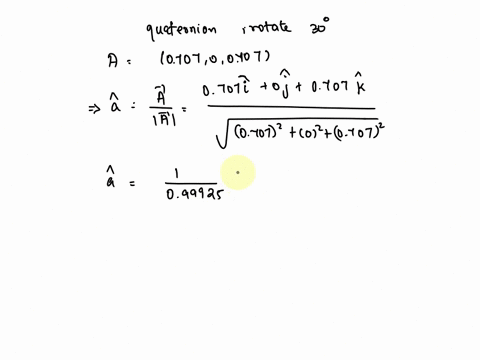 quaternion rotate 30°
A = (0.707, 0, 0.707)
⇒ â = A⃗ / |A⃗| = 0.707î + 0ĵ + 0.707 k̂ / √((0.707)² + (0)² + (0.707)²)
â = 1 / 0.99925